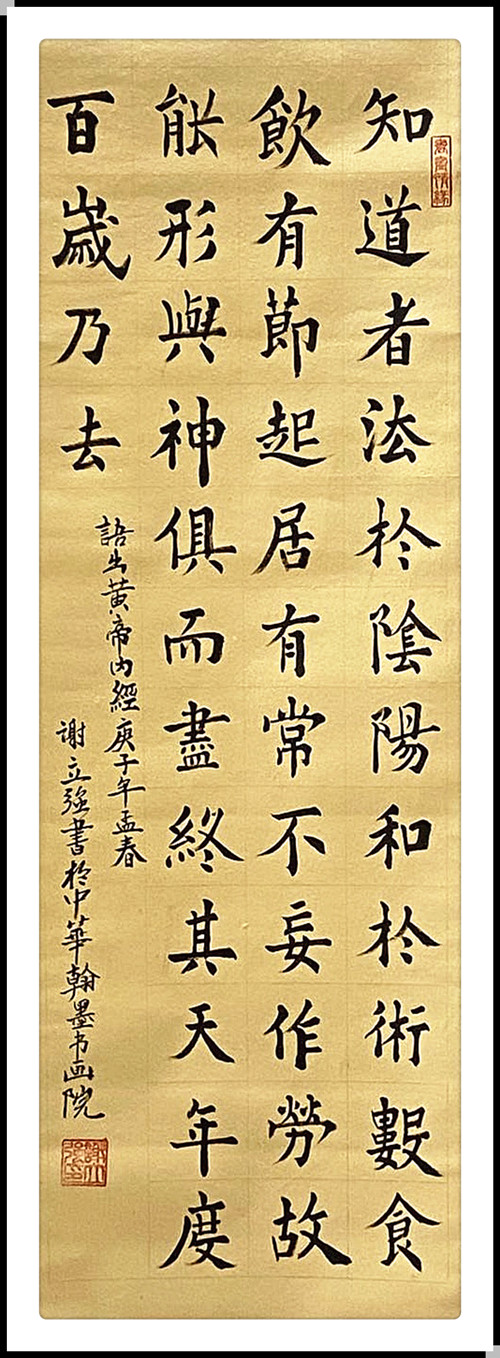 知道者法於陰陽和於術數食
飲有節起居有常不妄作勞故
能形與神俱而盡終其天年度
百歲乃去
語出黄帝内經庚子年孟春
谢立強書於中華翰墨书画院